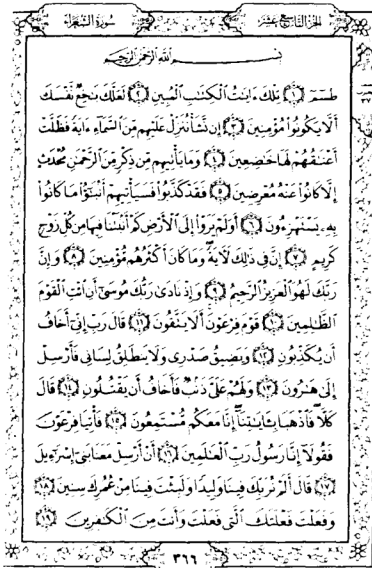 الجزء التاسع عشر
سورة الشعراء
بِسْمِ اللَّهِ الرَّحْمَٰنِ الرَّحِيمِ
طسٓمٓ ﴿١﴾ تِلْكَ ءَايَٰتُ الْكِتَٰبِ الْمُبِينِ ﴿٢﴾ لَعَلَّكَ بَٰخِعٌ نَّفْسَكَ
أَلَّا يَكُونُوا۟ مُؤْمِنِينَ ﴿٣﴾ إِن نَّشَأْ نُنَزِّلْ عَلَيْهِم مِّنَ السَّمَآءِ ءَايَةً فَظَلَّتْ
أَعْنَٰقُهُمْ لَهَا خَٰضِعِينَ ﴿٤﴾ وَمَا يَأْتِيهِم مِّن ذِكْرٍ مِّنَ الرَّحْمَٰنِ مُحْدَثٍ
إِلَّا كَانُوا۟ عَنْهُ مُعْرِضِينَ ﴿٥﴾ فَقَدْ كَذَّبُوا۟ فَسَيَأْتِيهِمْ أَنۢبَٰٓؤُا۟ مَا كَانُوا۟
بِهِۦ يَسْتَهْزِءُونَ ﴿٦﴾ أَوَلَمْ يَرَوْا۟ إِلَى الْأَرْضِ كَمْ أَنۢبَتْنَا فِيهَا مِن كُلِّ زَوْجٍ
كَرِيمٍ ﴿٧﴾ إِنَّ فِى ذَٰلِكَ لَءَايَةً وَمَا كَانَ أَكْثَرُهُم مُّؤْمِنِينَ ﴿٨﴾ وَإِنَّ
رَبَّكَ لَهُوَ الْعَزِيزُ الرَّحِيمُ ﴿٩﴾ وَإِذْ نَادَىٰ رَبُّكَ مُوسَىٰٓ أَنِ ائْتِ الْقَوْمَ
الظَّٰلِمِينَ ﴿١٠﴾ قَوْمَ فِرْعَوْنَ أَلَا يَتَّقُونَ ﴿١١﴾ قَالَ رَبِّ إِنِّىٓ أَخَافُ
أَن يُكَذِّبُونِ ﴿١٢﴾ وَيَضِيقُ صَدْرِى وَلَا يَنطَلِقُ لِسَانِى فَأَرْسِلْ
إِلَىٰ هَٰرُونَ ﴿١٣﴾ وَلَهُمْ عَلَىَّ ذَنۢبٌ فَأَخَافُ أَن يَقْتُلُونِ ﴿١٤﴾ قَالَ
كَلَّا فَاذْهَبَا بِـَٔايَٰتِنَآ إِنَّا مَعَكُم مُّسْتَمِعُونَ ﴿١٥﴾ فَأْتِيَا فِرْعَوْنَ
فَقُولَآ إِنَّا رَسُولُ رَبِّ الْعَٰلَمِينَ ﴿١٦﴾ أَنْ أَرْسِلْ مَعَنَا بَنِىٓ إِسْرَٰٓءِيلَ
﴿١٧﴾ قَالَ أَلَمْ نُرَبِّكَ فِينَا وَلِيدًا وَلَبِثْتَ فِينَا مِنْ عُمُرِكَ سِنِينَ ﴿١٨﴾
وَفَعَلْتَ فَعْلَتَكَ الَّتِى فَعَلْتَ وَأَنتَ مِنَ الْكَٰفِرِينَ ﴿١٩﴾
٣٦٦